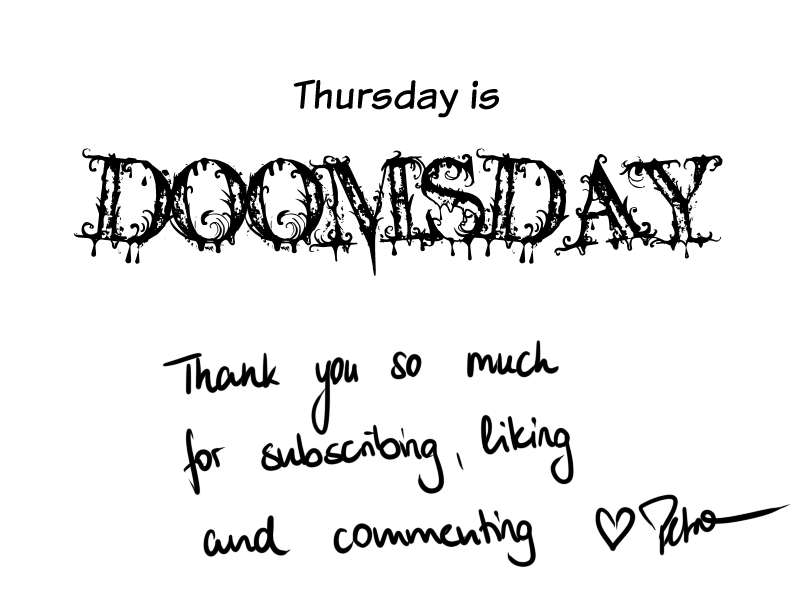 Thursday is
DOOMSDAY
Thank you so much
for subscribing, liking
and commenting ♡ Petra